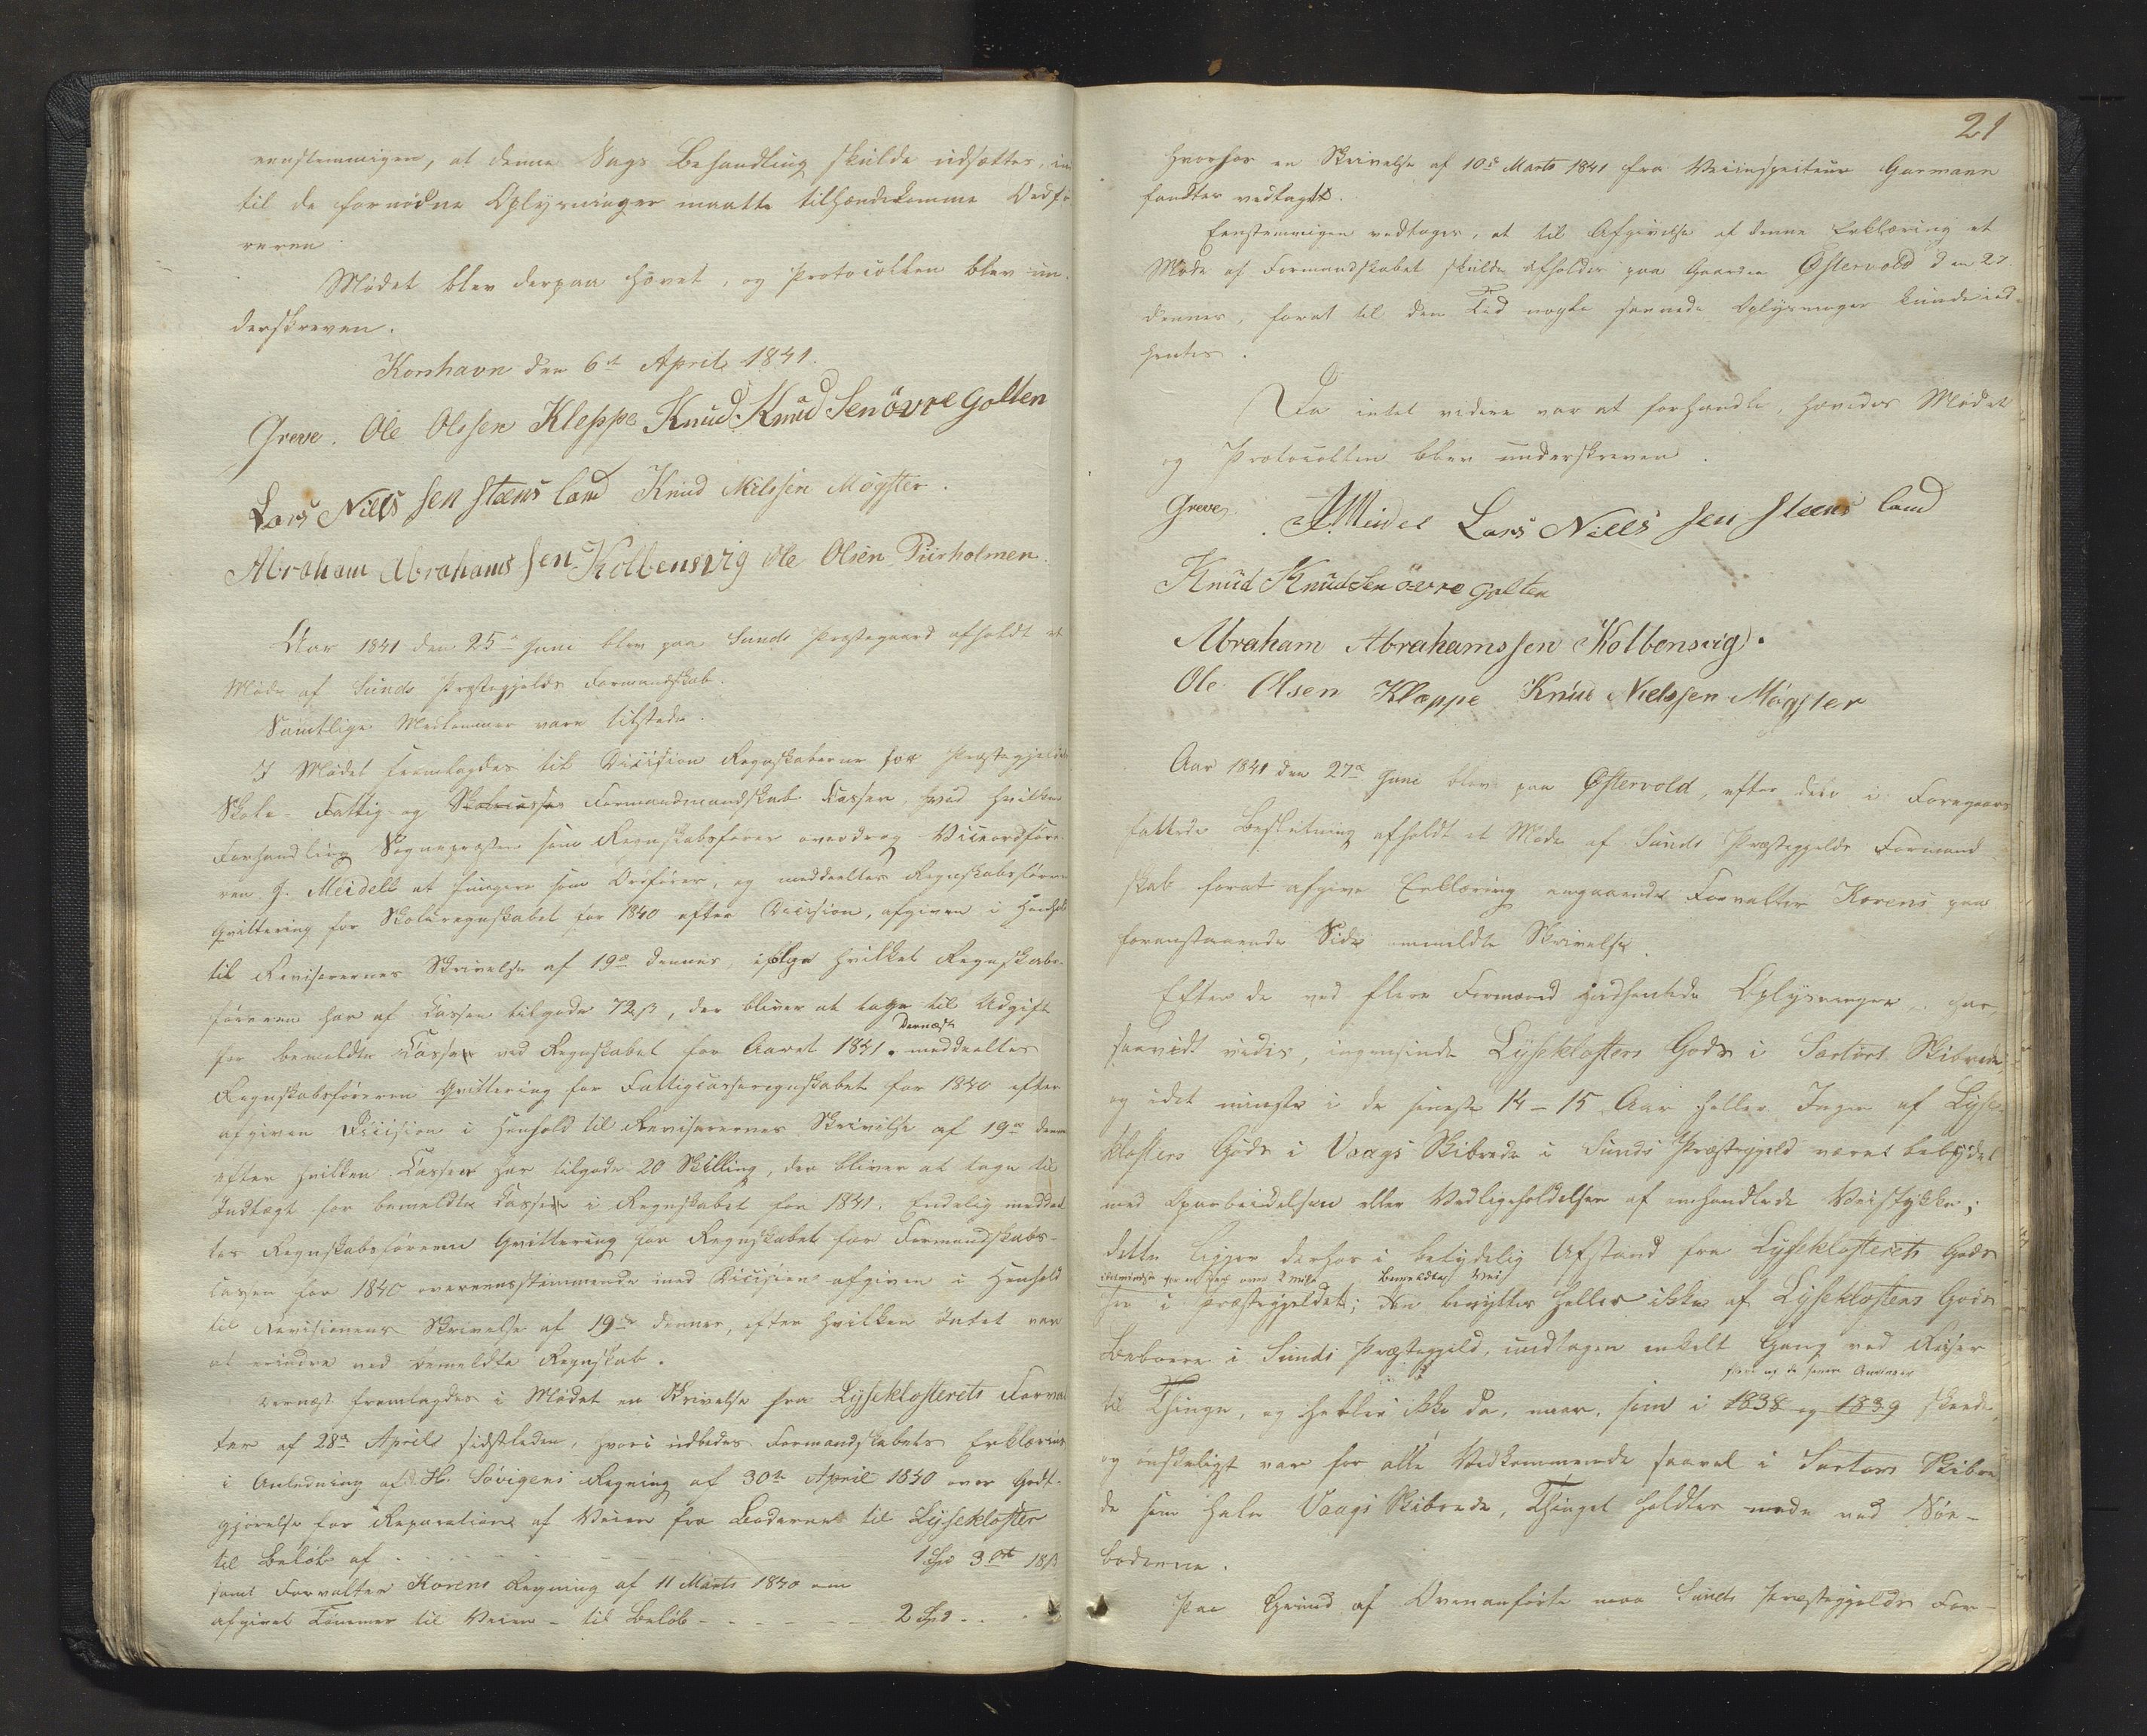 eenstemmigen, at denne Sags Behandling skulde udsættes, in
til de fornødne Oplysninger maatte tilhændekomme Ordfö
reren
Mödet blev derpaa hævet, og Protocollen blev un-
derskreven.
Korshavn den 6te April 1841.
Greve. Ole Olssen Kleppe Knud Knudsen övre golten
Lars Nills sen steens land Knud Nilssen Mögster.
Abraham Abrahams sen Kolbensvig Ole Olsen Piirholmen.
Aar 1841 den 25de Juni blev paa Sunds Præstegaard afholdt et
Møde af Sunds Præstegjelds Formandskab.
Samtlige Medlemmer vare tilstede.
I Mødet fremlagdes til Decision Regnskaberne for Præstegjeldets
Skole- Fattig- og Skolecasse Formandmandskab Casser, hvad hvilken
Forhandling Sognepræsten som Regnskabsfører overdrog Viceordföre-
ren J. Meidell at fungere som Ordfører, og meddeeltes Regnskabsføreren
Qvittering for Skoleregnskabet for 1840 efter Decision, afgiven i Henhold
til Revisorernes Skrivelse af 19de dennes, ifølge hvilket Regnskabs-
føreren har af Cassen tilgode 72 β, der bliver at tage til Udgift
for bemeldte Casse ved Regnskabet for Aaret 1841. Dernæst meddeeltes
Regnskabsføreren Qvittering for Fattigcasseregnskabet for 1840 efter
afgiven Decision i Henhold til Revisorernes Skrivelse af 19de dennes
efter hvilken Cassen har tilgode 20 Skilling, der bliver at tage til
Indtægt for bemeldte Casse i Regnskabet for 1841. Endelig meddeel
tes Regnskabsføreren Qvittering for Regnskabet for Formandskabs-
cassen for 1840 overeensstemmende med Decision afgiven i Henhold
til Revisionens Skrivelse af 19de dennes, efter hvilken Intet var
at erindre ved bemeldte Regnskab.
Dernæst fremlagdes i Mødet en Skrivelse fra Lyseklosterets Forval
ter af 28de April sidstleden, hvori udbedes Formandskabets Erklæring
i Anledning af H. Søvigens Regning af 30te April 1840 over Godt-
gjørelse for Reparation af Veien fra Boderne til Lysekloster
til Beløb af 1 Spd 3 Ort 18 β
samt Forvalter Korens Regning af 11 Marts 1840 om
afgivet Tømmer til Veien - til Beløb - - - 2 Spd
21
hvorhos en Skrivelse af 10de Marts 1841 fra Veiinspecteur Garmann
fandtes vedlagt.
Eenstemmigen vedtoges, at til Afgivelse af denne Erklæring et
Møde af Formandskabet skulde afholdes paa Gaarden Østervold den 27
dennes, forat til den Tid nogle fornødne Oplysninger kunde ind-
hentes.
Da intet videre var at forhandle, hævedes Mødet
og Protocollen blev underskreven.
Greve. J. Meidel Lars Nills sen steens land
Knud Knudsen övre golten
Abraham Abrahamssen Kolbensvig.
Ole Olsen Kleppe Knud Nielssen Mögster
Aar 1841 den 27de Juni blev paa Østervold, efter den i Foregaaende
fattede Beslutning afholdt et Møde af Sunds Præstegjelds Formand
skab forat afgive Erklæring angaaende Forvalter Korens paa
foranstaaende Side ommeldte Skrivelse.
Efter de ved flere Formænd indhentede Oplysninger, har,
saavidt vides, ingensinde Lyseklosters Gods i Sartors Skibrede
og idet mindste i de seneste 14 - 15 Aar heller Ingen af Lyse-
klosters Gods i Vaags Skibrede i Sunds Præstegjeld været bebyrdet
med Oparbeidelsen eller Vedligeholdelsen af omhandlede Veistykke;
dette ligger derhos i betydelig Afstand fra Lyseklosterets Gods
idetmindste for en Deel over 2 Mile bemeldte Vei
her i Præstegjeldet; den benyttes heller ikke af Lyseklosters Gods
Beboere i Sunds Præstegjeld, undtagen enkelt Gang ved Reiser
til Thinge, og heller ikke da, naar, som i 1838 og 1839 skeede,
og ønskeligt var for alle Vedkommende saavel i Sartors Skibre
de som hele Vaags Skibrede, Thinget holdtes nede ved Søe-
boderne.
Paa Grund af Ovenanførte maa Sunds Præstegjelds For-